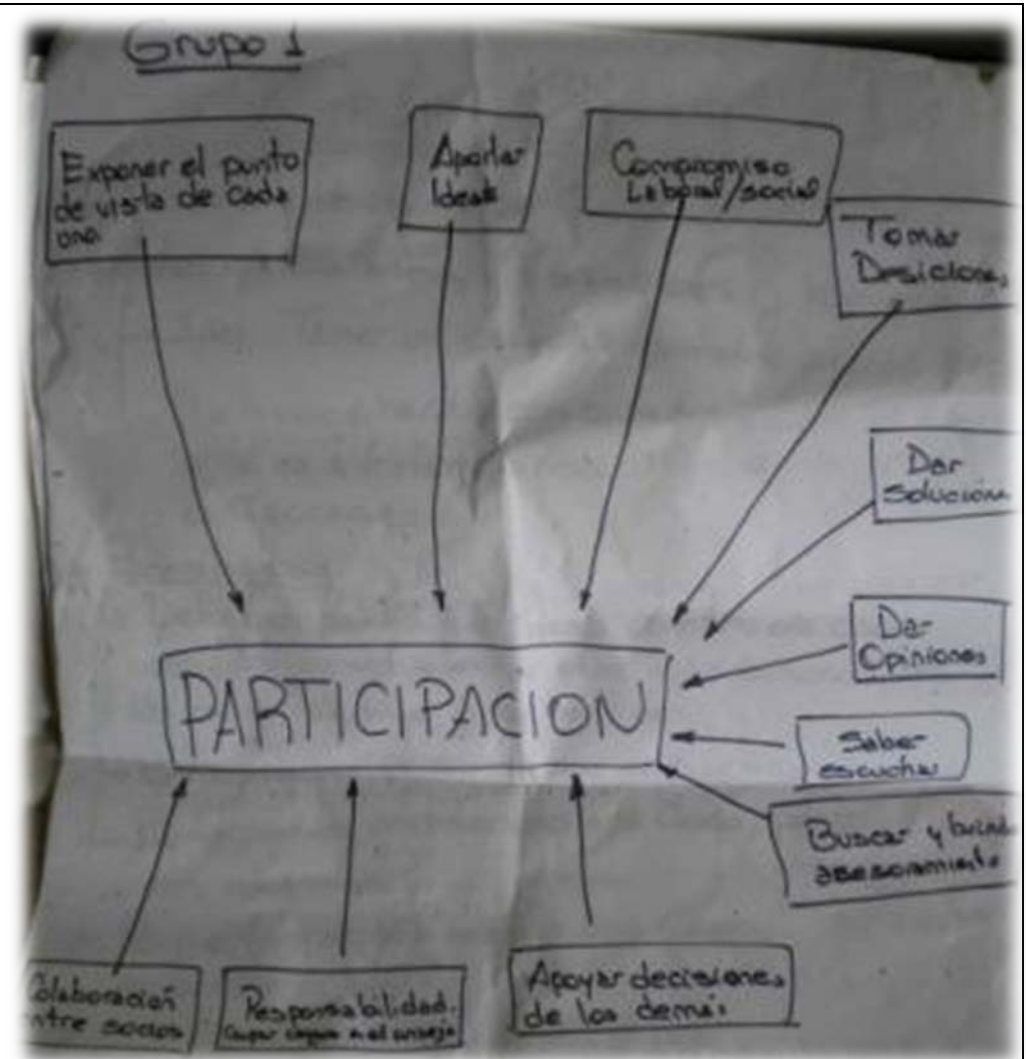 Grupo 1
Exponer el punto
de vista de cada
uno
Aportar
Ideas
Compromiso
Laboral/social
Tomar
Desiciones
Dar
Solucion
Dar
Opiniones
Saber
escuchar
Buscar y
asesoramiento
PARTICIPACION
Colaboración
entre socios
Responsabilidad.
Ocupar cargos en el consejo
Apoyar decisiones
de los demás